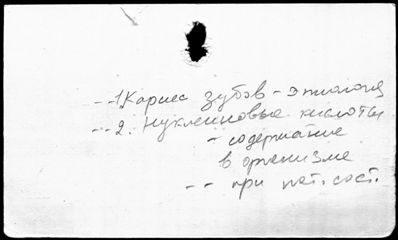 --1. Кариес зубов - этиология
--2. Нуклеиновые кислоты
- содержание
в организме
-- при пат. сост.